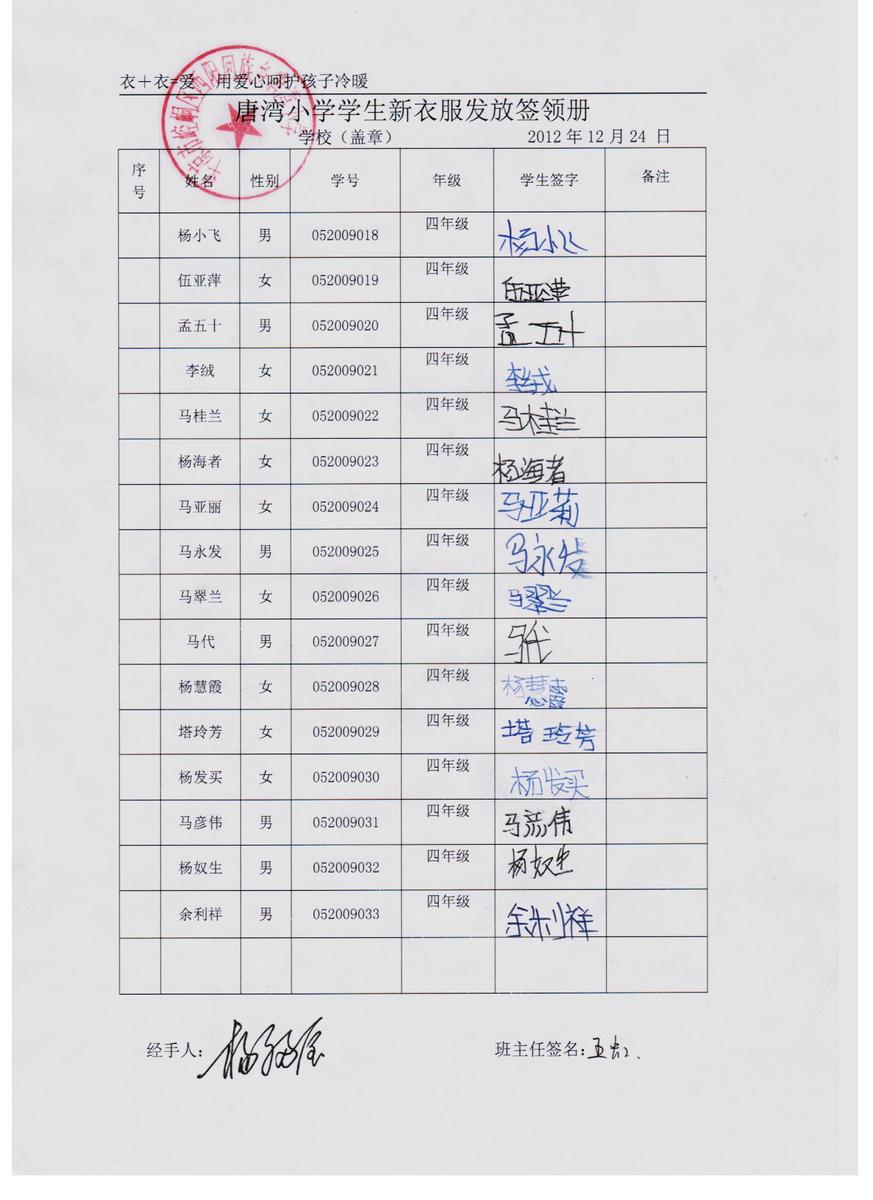 衣＋衣=爱 用爱心呵护孩子冷暖
唐湾小学学生新衣服发放签领册
学校（盖章） 2012年12月24 日
序号 姓名 性别 学号 年级 学生签字 备注
杨小飞 男 052009018 四年级 杨小飞
伍亚萍 女 052009019 四年级 伍亚萍
孟五十 男 052009020 四年级 孟五十
李绒 女 052009021 四年级 李绒
马桂兰 女 052009022 四年级 马桂兰
杨海者 女 052009023 四年级 杨海者
马亚丽 女 052009024 四年级 马亚菊
马永发 男 052009025 四年级 马永发
马翠兰 女 052009026 四年级 马翠兰
马代 男 052009027 四年级 马代
杨慧霞 女 052009028 四年级 杨慧霞
塔玲芳 女 052009029 四年级 塔玲芳
杨发买 女 052009030 四年级 杨发买
马彦伟 男 052009031 四年级 马彦伟
杨奴生 男 052009032 四年级 杨奴生
余利祥 男 052009033 四年级 余利祥
经手人： 班主任签名：